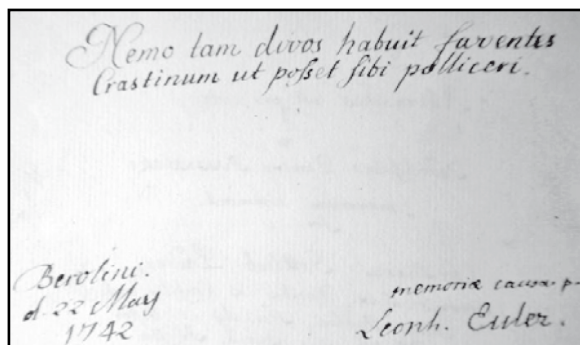 Nemo tam divos habuit faventes
Crastinum ut poſſet ſibi polliceri.
Berolini.
d. 22 May
1742
memoriæ causa p.
Leonh. Euler.